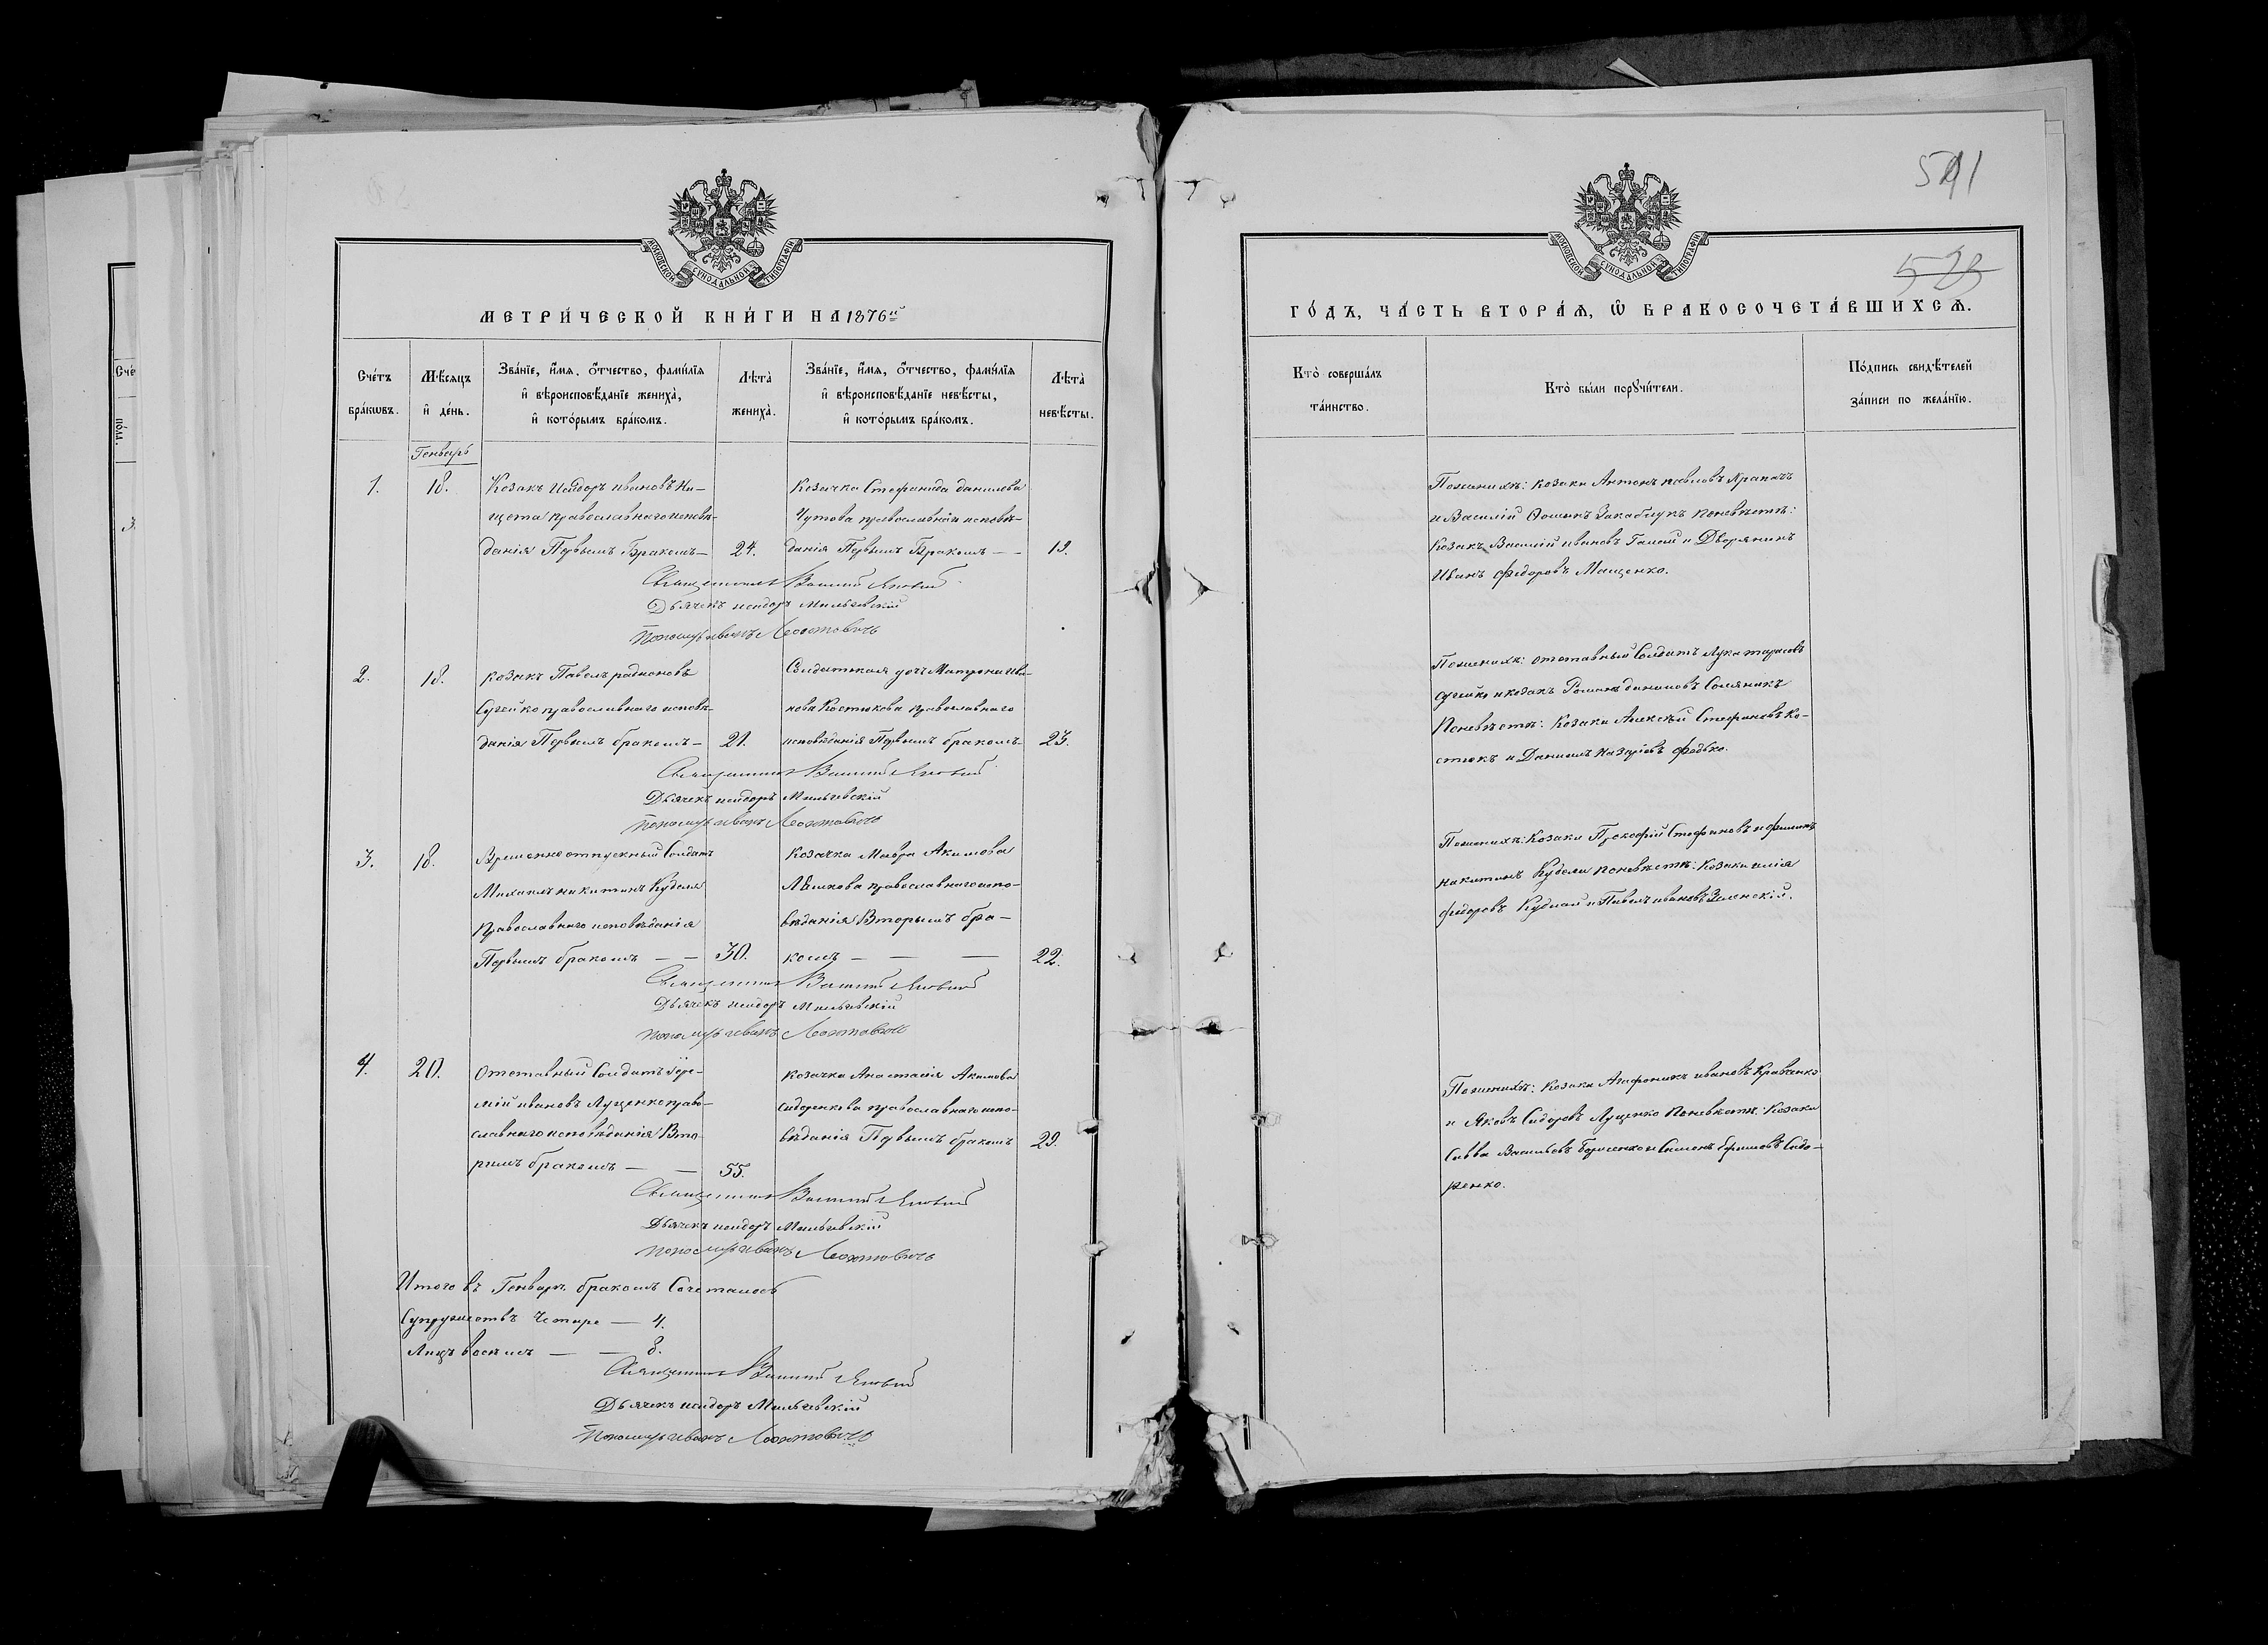 МОСКОВСКОЙ СѴНОДАЛЬНОЙ ТИПОГРАФІИ
МЕТРИ́ЧЕСКОЙ КНИ́ГИ НА 1876й
Сче́тъ бра́кѡвъ.
Мѣ́сяцъ и҆ де́нь.
Зва́нїе, и҆́мя, ѻ҆́тчество, фами́лїя
и҆ вѣроисповѣ́данїе жениха̀,
и҆ кото́рымъ бра́комъ.
Лѣта̀ жениха̀.
Зва́нїе, и҆́мя, ѻ҆́тчество, фами́лїя
и҆ вѣроисповѣ́данїе невѣ́сты,
и҆ кото́рымъ бра́комъ.
Лѣта̀ невѣ́сты.
Генварь
1.
18.
Козакъ Исидоръ Ивановъ Ни-
щета православнаго исповѣ-
данія Первымъ Бракомъ
24.
Козачка Стефанида Данилова
Чутова православнаго исповѣ-
данія Первымъ Бракомъ
19.
Священникъ Василій
Дьячекъ Исидоръ Мильчевскій
Пономарь Иванъ
2.
18.
Козакъ Павелъ Радионовъ
Сугейко православнаго исповѣ-
данія Первымъ бракомъ
21.
Солдатская дочь Матрона Ива-
нова Костюкова православнаго
исповѣданія Первымъ бракомъ
23.
Священникъ Василій
Дьячекъ Исидоръ Мильчевскій
Пономарь Иванъ
3.
18.
Временно отпускный Солдатъ
Михаилъ Никитинъ Кубеля
Православнаго исповѣданія
Первымъ бракомъ
30.
Козачка Мавра Акимова
православнаго испо-
вѣданія Вторымъ бра-
комъ
22.
Священникъ Василій
Дьячекъ Исидоръ Мильчевскій
Пономарь Иванъ
4.
20.
Отставный Солдатъ Іере-
мій Ивановъ Луценко право-
славнаго исповѣданія Вто-
рымъ бракомъ
55.
Козачка Анастасія Акимова
Сидоренкова православнаго испо-
вѣданія Первымъ бракомъ
29.
Священникъ Василій
Дьячекъ Исидоръ Мильчевскій
Пономарь Иванъ
Итого въ Генварѣ бракомъ Сочеталось
Супружествъ Четыре — 4.
Лицъ восемь — 8.
Священникъ Василій
Дьячекъ Исидоръ Мильчевскій
Пономарь Иванъ
МОСКОВСКОЙ СѴНОДАЛЬНОЙ ТИПОГРАФІИ
ГО́ДЪ, ЧА́СТЬ ВТОРА́Я, Ѡ҆ БРАКОСОЧЕТА́ВШИХСѦ.
Кто̀ соверша́лъ
та́инство.
Кто̀ бы́ли порꙋчи́тели.
По́дпись свидѣ́телей
за́писи по жела́нїю.
Поженихѣ: козаки Антонъ Павловъ Крапачъ
и Василій Ѳоминъ Закаблукъ Поневѣстѣ:
Козакъ Василій Ивановъ Гамай и Дворянинъ
Иванъ Федоровъ Мащенко.
Поженихѣ: отставный Солдатъ Лука Тарасовъ
Сугейко и козакъ Романъ Данииловъ Соляникъ
Поневѣстѣ: Козаки Алексѣй Стефановъ Ко-
стюкъ и Даниилъ Назаріевъ Федько.
Поженихѣ: Козаки Прокофій Стефановъ и
Никитинъ Кубели Поневѣстѣ: Козаки Илія
Федоровъ и Павелъ Ивановъ Зеленскій.
Поженихѣ: Козаки Агафоникъ Ивановъ Кравченко
и Яковъ Сидоровъ Луценко Поневѣстѣ: Козаки
Савва Васильевъ и Симонъ Ефимовъ Сидо-
ренко.